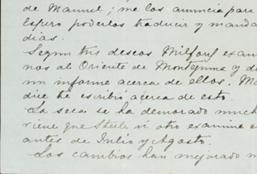 de Manuel; me los anuncia para
Espero poderlos traducir y manda
dias.
Segun tus deseos Milford exam
nos al Oriente de Montezuma y d
un informe acerca de ellos. M
dice te escribió acerca de esto.
La seca se ha demorado much
viene que Steele ú otro examine e
antes de Julio y Agosto.
Los cambios han mejorado m